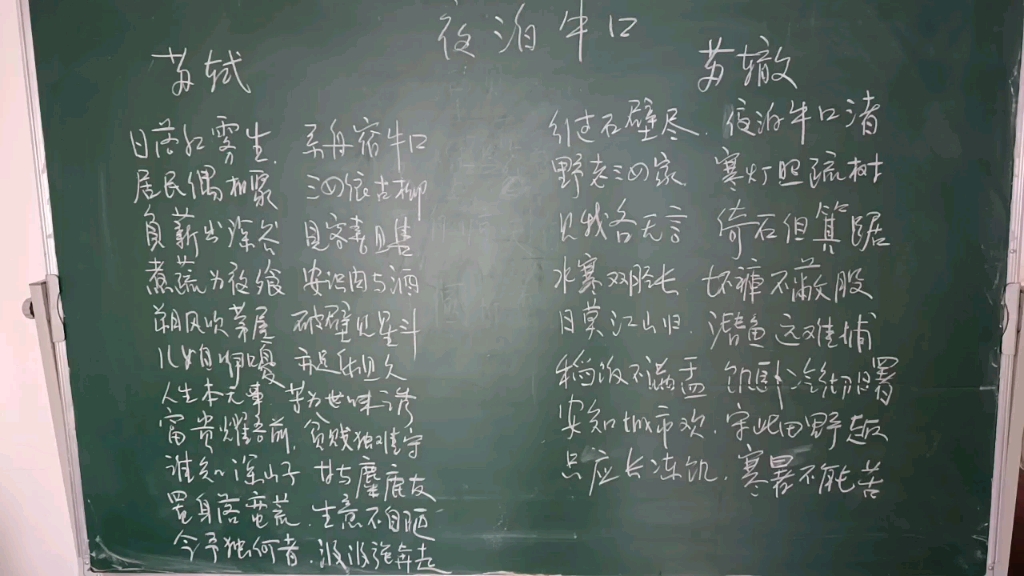 夜泊牛口
苏轼
日落红雾生 系舟宿牛口
居民偶相聚 三四依古柳
负薪出深谷 见客喜且售
煮蔬为夜飧 安识肉与酒
朔风吹茅屋 破壁见星斗
儿女自咿嚘 亦足乐且久
人生本无事 苦为世味诱
富贵耀吾前 贫贱独难守
谁知深山子 甘与麋鹿友
置身落蛮荒 生意不自陋
今予独何者 汲汲强奔走
苏辙
行过石壁尽 夜泊牛口渚
野老三四家 寒灯照疏树
见我各无言 倚石但箕踞
水寒双胫长 坏裤不蔽股
日莫江上归 潜鱼远难捕
稻饭不满盂 饥卧冷彻曙
安知城市欢 守此田野趣
只应长冻饥 寒暑不能苦